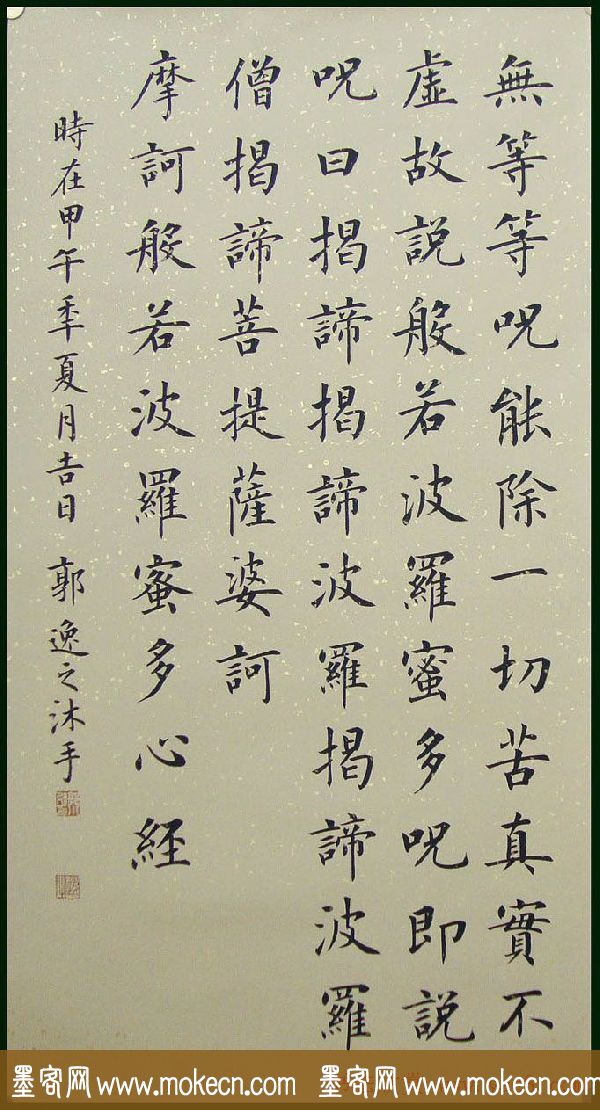 無等等呪能除一切苦真實不
虛故説般若波羅蜜多呪即説
呪曰揭諦揭諦波羅揭諦波羅
僧揭諦菩提薩婆訶
摩訶般若波羅蜜多心経
時在甲午季夏月吉日 郭逸之沐手
墨客网 www.mokecn.com 墨客网 www.mokecn.com